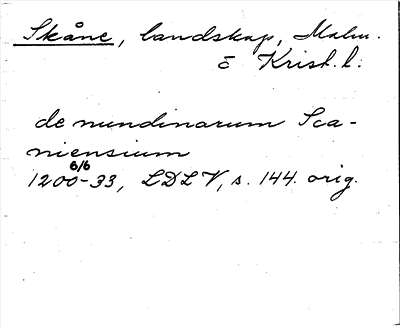 Skåne, landskap, Malm.
o Krist. l.
de nundinarum Sca-
niensium
6/6
1200-33, LDLV, s. 144. orig.